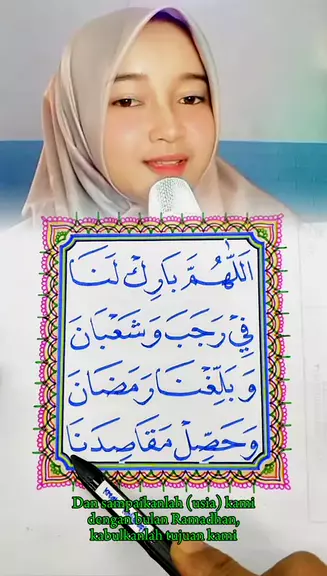 اَللّٰهُمَّ بَارِكْ لَنَا
فِيْ رَجَبَ وَشَعْبَانَ
وَبَلِّغْنَا رَمَضَانَ
وَحَصِّلْ مَقَاصِدَنَا
Dan sampaikanlah (usia) kami
dengan bulan Ramadhan,
kabulkanlah tujuan kami